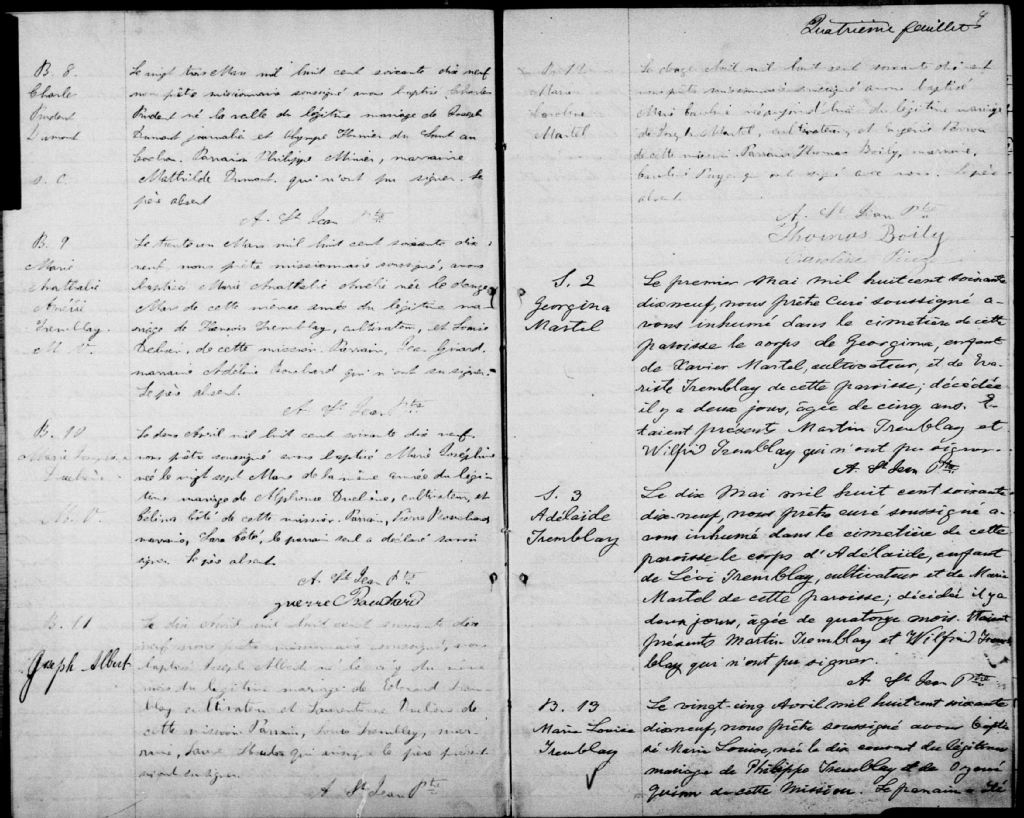 B. 8.
Charle
Prudent
Dumont
S. C.
Le vingt trois Mars mil huit cent soixante dix neuf
nous prêtre missionnaire soussigné avons baptisé Charles
Prudent né la veille du légitime mariage de Joseph
Dumont journalier et Olympe
Cochon. Parrain Philippe Minier, marraine
Mathilde Dumont qui n'ont pu signer. Le
père absent
A. St Jean Ptre
B. 9
Marie
Anathalie
Amélie
Tremblay
M. V.
Le trente un Mars mil huit cent soixante dix
neuf, nous prêtre missionnaire soussigné, avons
baptisé Marie Anathalie Amélie née le douze
Mars de cette même année du légitime ma-
riage de François Tremblay, cultivateur, et Louise
de cette mission. Parrain, Jean Girard,
marraine Adélie Bouchard qui n'ont su signer.
Le père absent.
A. St Jean Ptre
B. 10
Marie Josephine
Le deux Avril mil huit cent soixante dix neuf
nous prêtre soussigné avons baptisé Marie Joséphine
née le vingt sept Mars de la même année du légi-
time mariage de Alphonse cultivateur, et
Célina Côté de cette mission. Parrain, Pierre Bouchard
marraine, Sara Côté, le parrain seul a déclaré savoir
signer. Le père absent.
A. St Jean Ptre
Bouchard
B. 11
Joseph-Albert
Le dix Avril mil huit cent soixante dix
neuf nous prêtre missionnaire soussigné, avons
baptisé Joseph Albert né le cinq du
mois du légitime mariage de Edouard Trem-
blay cultivateur et Laurentienne de
cette mission Parrain, Louis Tremblay, mar-
raine, qui ainsi que le père
A. St Jean Ptre
4
Quatrième feuillet
Marie
Caroline
Martel
Le douze Avril mil huit cent soixante dix et
nous prêtre missionnaire soussigné avons baptisé
Marie Caroline du légitime mariage
de Martel, cultivateur, et
de cette mission Parrain Thomas Boily, marraine,
qui ont signé avec nous. Le père
absent
A. St Jean Ptre
Thomas Boily
Caroline
S. 2
Georgina
Martel
Le premier Mai mil huit cent soixante
dix neuf, nous prêtre curé soussigné a-
vons inhumé dans le cimetière de cette
paroisse le corps de Georgina, enfant
de Xavier Martel, cultivateur, et de Eva-
riste Tremblay de cette paroisse; décédée
il y a deux jours, âgée de cinq ans. E-
taient présents Martin Tremblay et
Wilfrid Tremblay qui n'ont pu signer.
A. St Jean Ptre
S. 3
Adélaide
Tremblay
Le dix Mai mil huit cent soixante
dix-neuf, nous prêtre curé soussigné a-
vons inhumé dans le cimetière de cette
paroisse le corps d'Adélaide, enfant
de Lévi Tremblay, cultivateur et de Marie
Martel de cette paroisse; décédée il y a
deux jours, âgée de quatorze mois. Etaient
présents Martin Tremblay et Wilfrid Trem-
blay qui n'ont pu signer.
A. St Jean Ptre
B. 13
Marie Louise
Tremblay
Le vingt-cinq Avril mil huit cent soixante
dix neuf, nous prêtre soussigné avons bapti-
sé Marie Louise, née le dix courant du légitime
mariage de Philippe Tremblay et de
de cette Mission. Le parrain a été